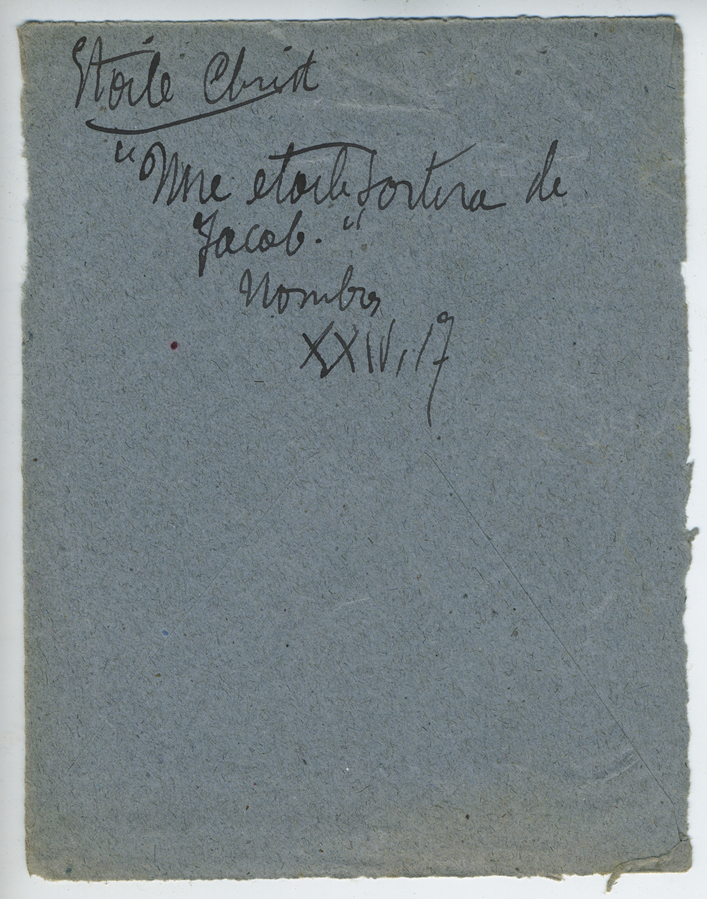 Etoile Christ
"Une etoile sortira de
Jacob."
Nombres
XXIV, 17